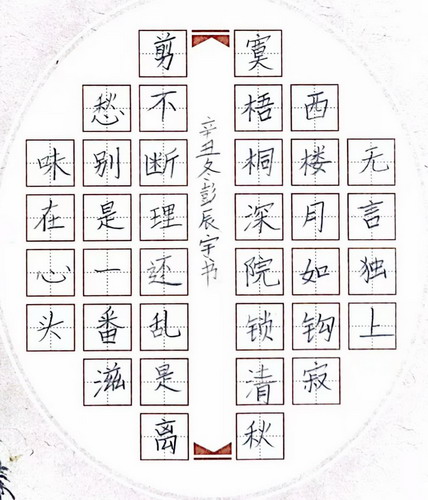 无言独上
西楼月如钩寂
寞梧桐深院锁清秋
剪不断理还乱是离
愁别是一番滋
味在心头
辛丑冬彭辰宇书